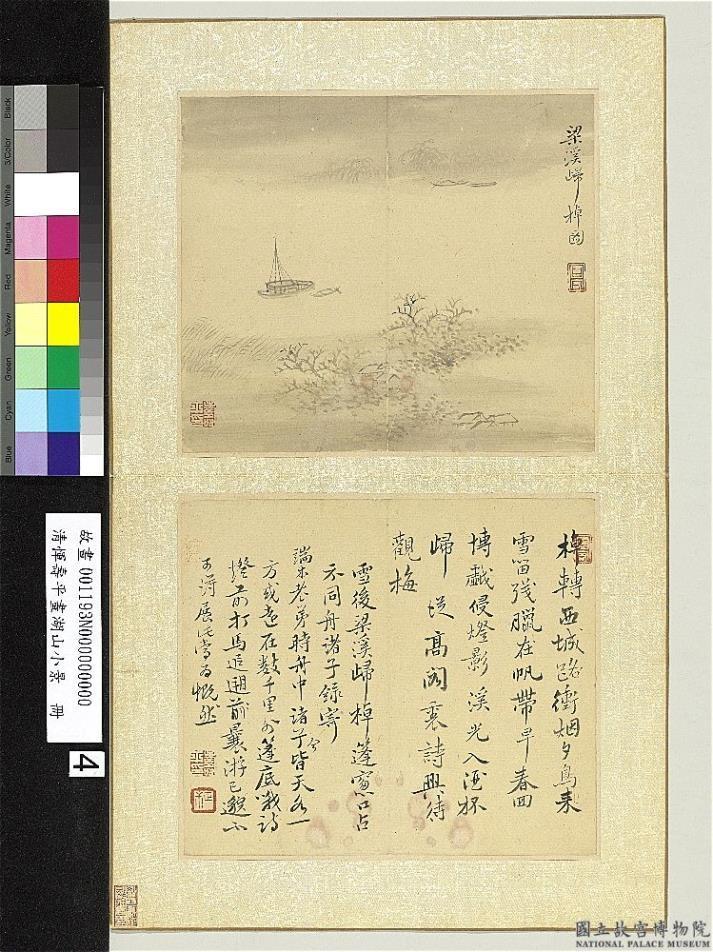 梁溪歸棹圖
棹轉西城路衝烟夕鳥來
雪留殘臘在帆帶早春回
博戲侵燈影溪光入酒杯
歸從高閣裏詩興待
觀梅
雪後梁溪歸棹蓬窓口占
示同舟諸子錄寄
端木老弟時舟中諸子今皆天各一
方或遠在數千里外蓬底濺詩
燈前打馬追遡前曩游已邈不
可得展此當為慨然
故畫 001193N000000000
清惲壽平畫湖山小景 冊
4
Black
3/Color
White
Magenta
Red
Yellow
Green
Cyan
Blue
國立故宮博物院
NATIONAL PALACE MUSEUM